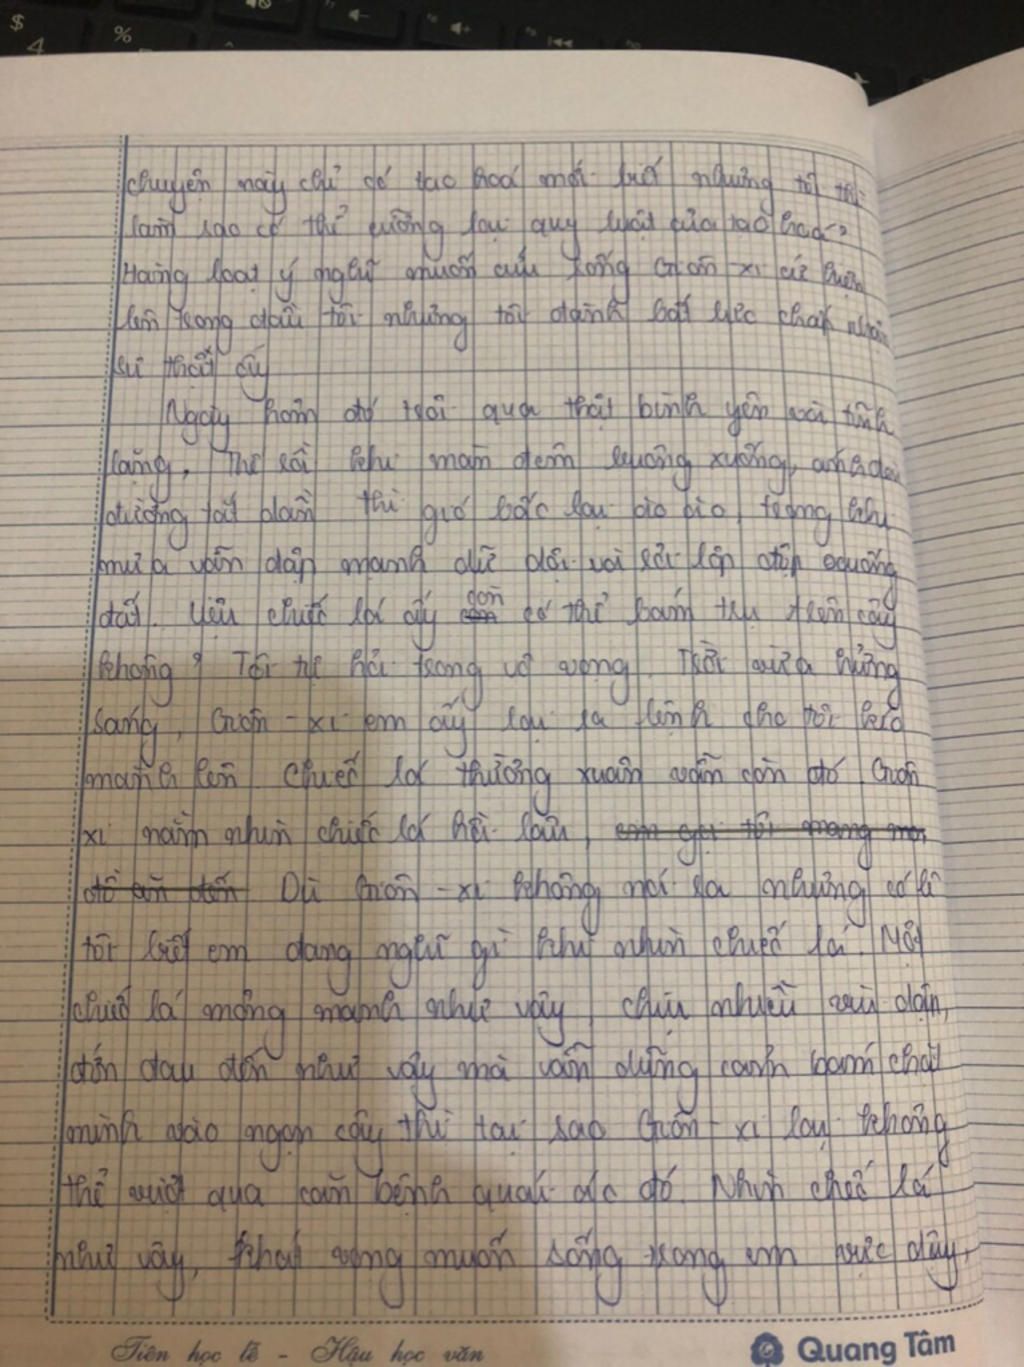 $
4
%
chuyện này chỉ có tạo hoá mới biết nhưng tôi thì
làm sao có thể cưỡng lại quy luật của tạo hoá?
Hàng loạt ý nghĩ muốn cứu sống Giôn-xi cứ hiện
lên trong đầu tôi nhưng tôi đành bất lực chấp nhận
sự thật ấy
Ngày hôm đó trôi qua thật bình yên và tĩnh
lặng, Thế rồi khi màn đêm buông xuống, ánh đèn
đường tắt dần thì gió bấc lại ào ào, trong khi
mưa vẫn dập mạnh dữ dội và rơi lộp độp xuống
đất. Liệu chiếc lá ấy còn có thể bám trụ trên cây
không? Tôi tự hỏi trong vô vọng. Trời vừa hửng
sáng, Giôn-xi em ấy lại ra lệnh cho tôi kéo
mành lên. Chiếc lá thường xuân vẫn còn đó. Giôn
xi nằm nhìn chiếc lá hồi lâu, em gọi tôi mang
đồ ăn đến Dù Giôn-xi không nói ra nhưng có lẽ
tôi biết em đang nghĩ gì khi nhìn chiếc lá. Một
chiếc lá mỏng manh như vậy, chịu nhiều vùi dập,
đớn đau đến như vậy mà vẫn dũng cảm bám chặt
mình vào ngọn cây thì tại sao Giôn-xi lại không
thể vượt qua căn bệnh quái ác đó. Nhìn chiếc lá
như vậy, khát vọng muốn sống trong em trực dậy,
Tiên học lễ - Hậu học văn
Quang Tâm